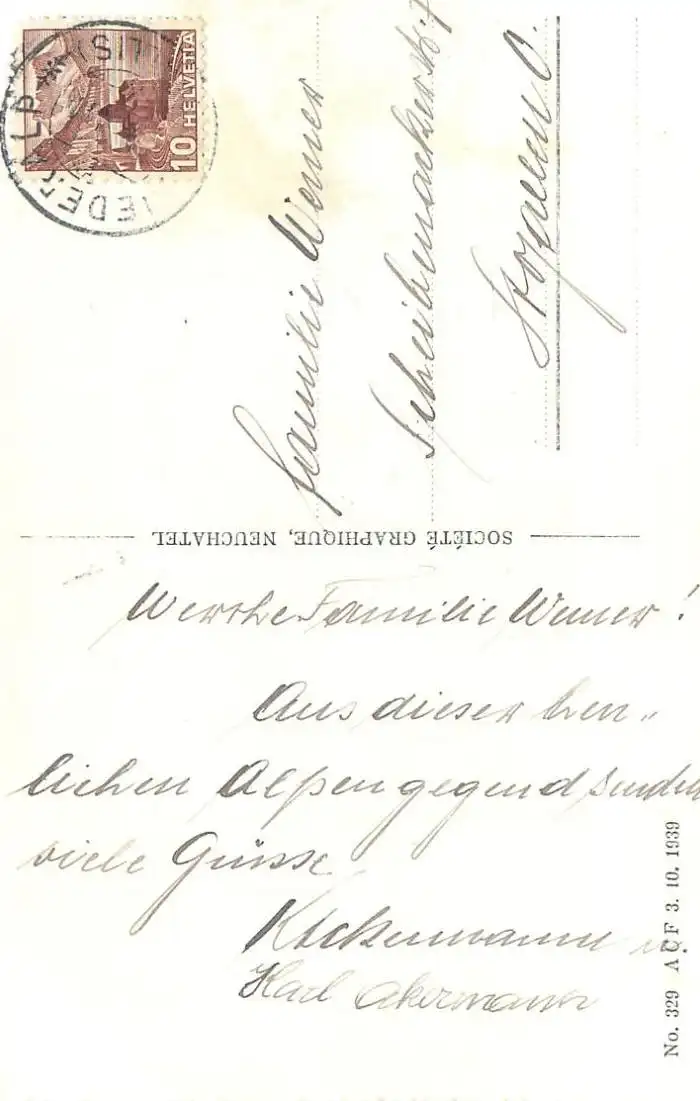 10 HELVETIA
Familie Werner
Scheibenackerstr. 7
St. gallen O.
SOCIÉTÉ GRAPHIQUE, NEUCHATEL
Werthe Familie Werner!
Aus dieser herr„
lichen Alpengegend senden
viele Grüsse
Karl Akermann
No. 329 ACF 3. 10. 1939